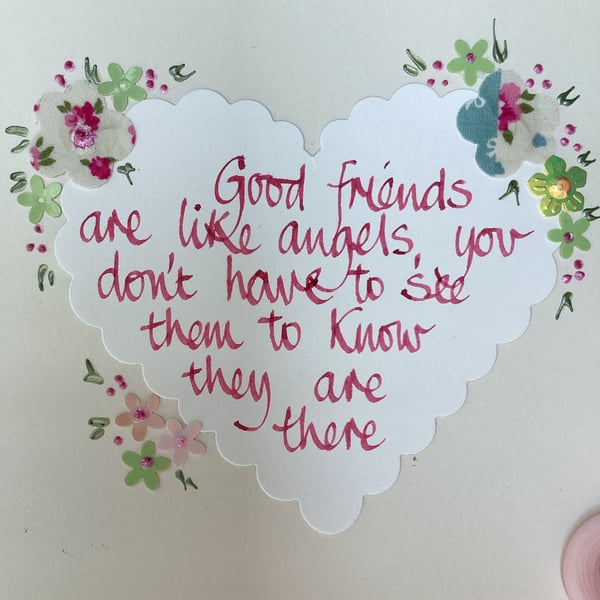 Good friends
are like angels, you
don't have to see
them to know
they are
there